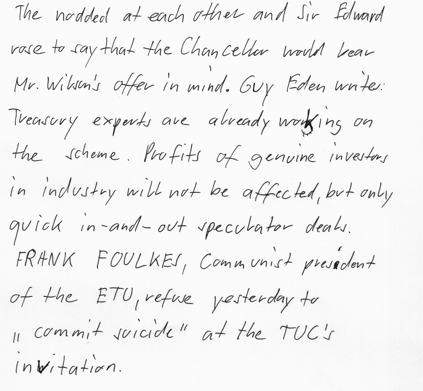 The nodded at each other and Sir Edward
rose to say that the Chancellor would bear
Mr. Wilson's offer in mind. Guy Eden writer:
Treasury experts are already working on
the scheme. Profits of genuine investors
in industry will not be affected, but only
quick in-and-out speculator deals.
FRANK FOULKES, Communist president
of the ETU, refuse yesterday to
„ commit suicide" at the TUC's
invitation.